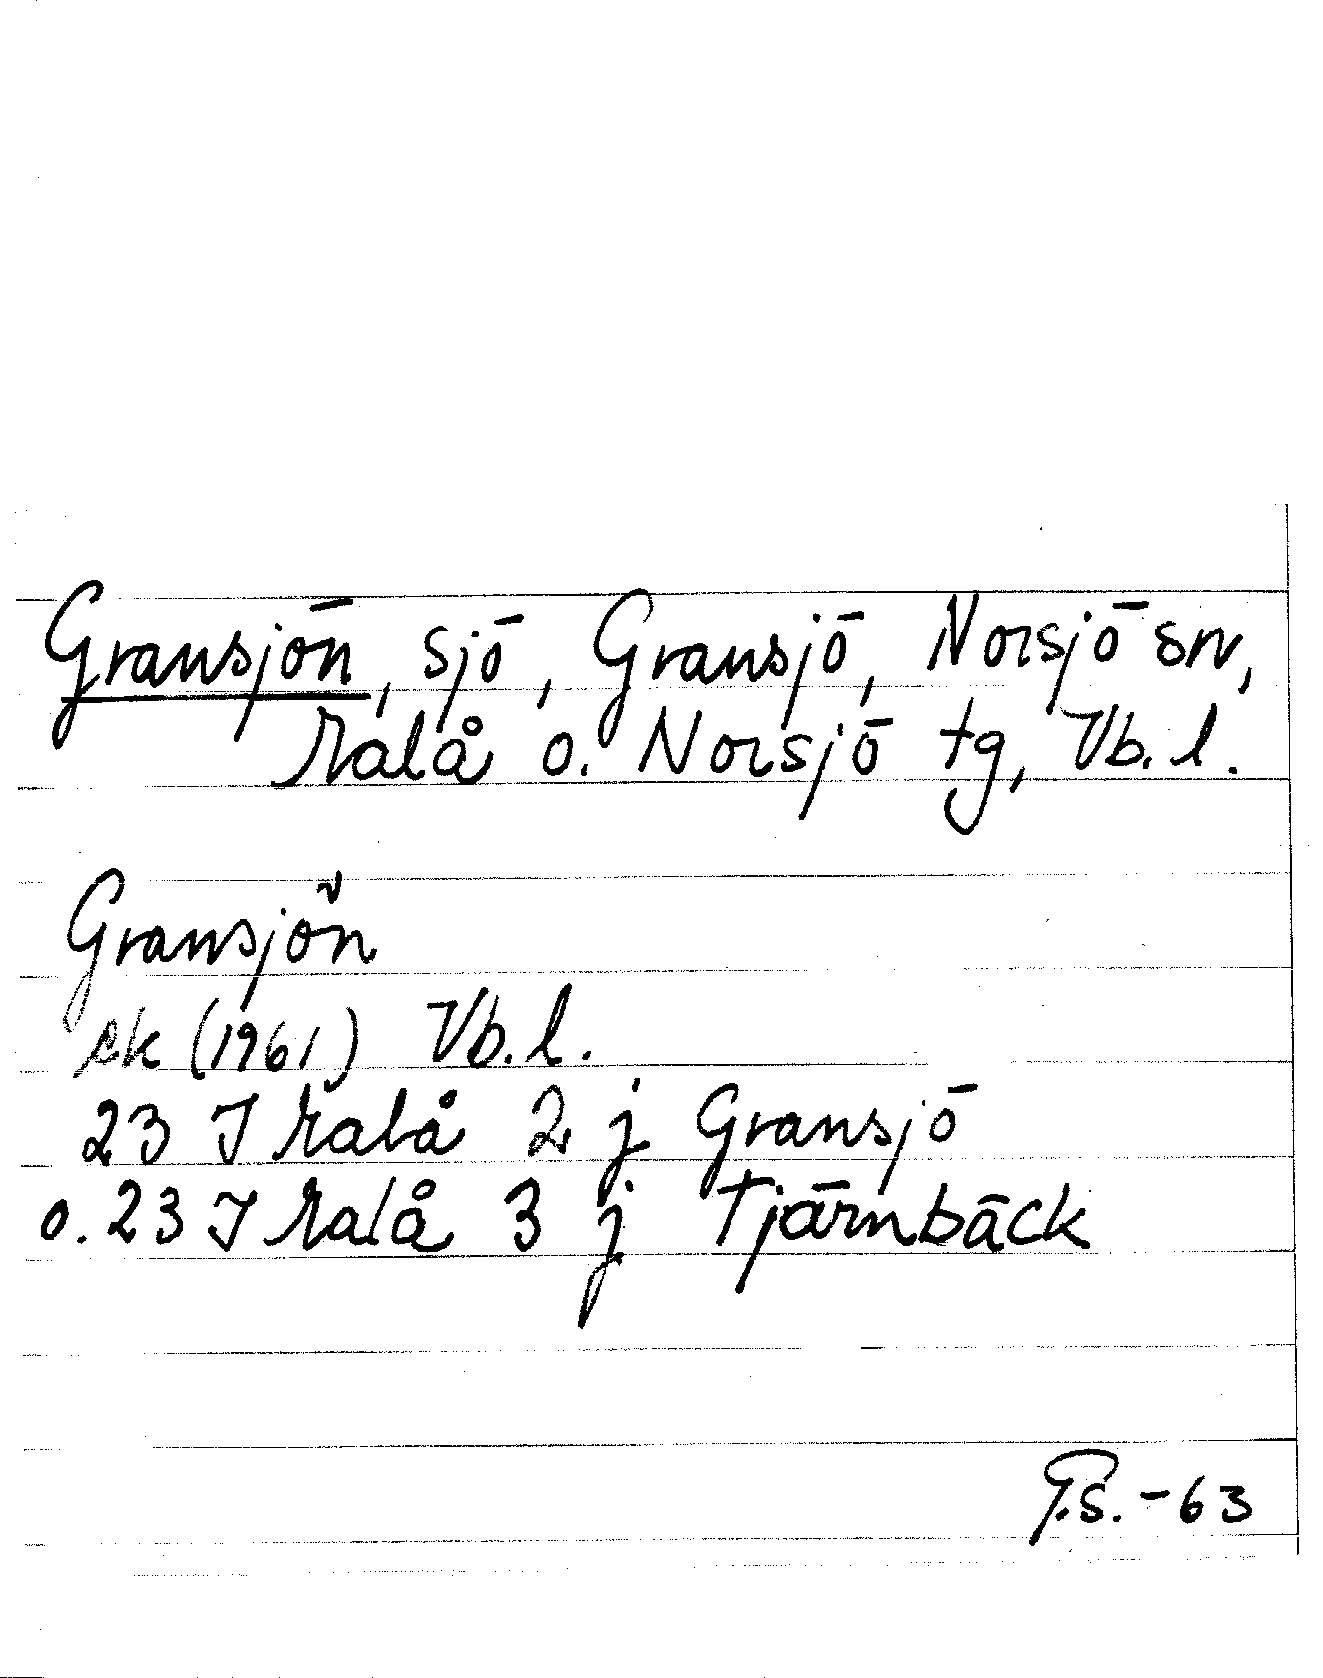 Gransjön, sjö, Gransjö, Norsjö sn,
Malå o. Norsjö tg, Vb. l.
Gransjön
ek (1961) Vb. l.
23 I Malå 2 j Gransjö
o. 23 I Malå 3 j Tjärnbäck
G.S. -63